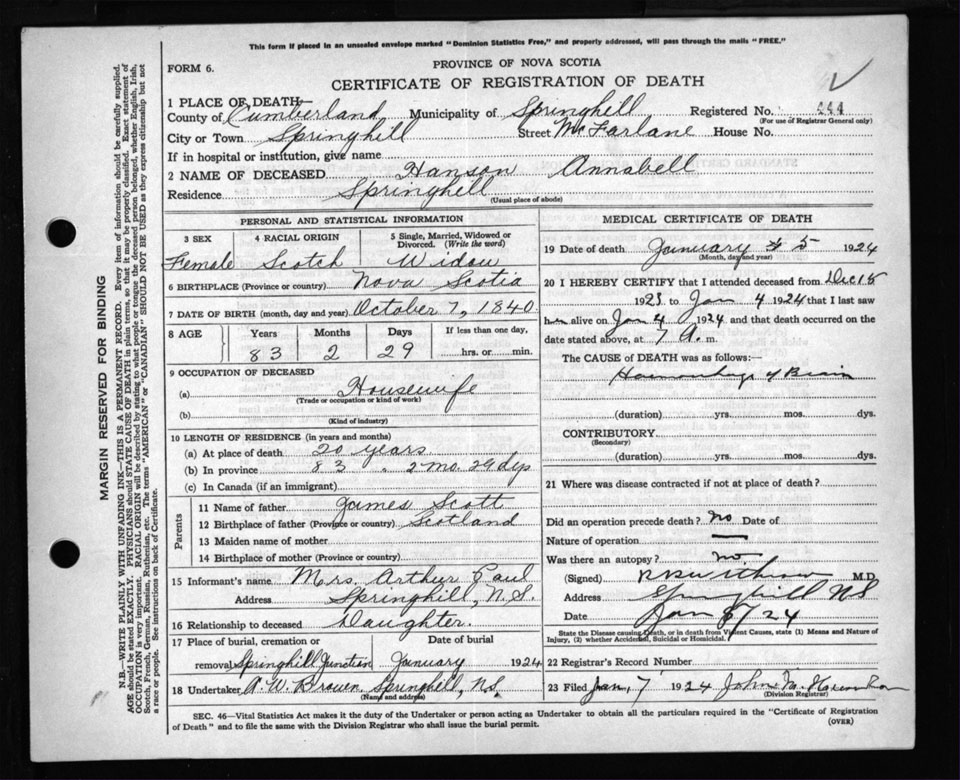 This form if placed in an unsealed envelope marked "Dominion Statistics Free," and properly addressed, will pass through the mails "FREE."
FORM 6.
PROVINCE OF NOVA SCOTIA
CERTIFICATE OF REGISTRATION OF DEATH
1 PLACE OF DEATH
County of Cumberland Municipality of Springhill Registered No. 444
(For use of Registrar General only)
City or Town Springhill Street McFarlane House No.
If in hospital or institution, give name
2 NAME OF DECEASED Hanson Annabell
Residence Springhill
(Usual place of abode)
PERSONAL AND STATISTICAL INFORMATION
3 SEX 4 RACIAL ORIGIN 5 Single, Married, Widowed or Divorced. (Write the word)
Female Scotch Widow
6 BIRTHPLACE (Province or country) Nova Scotia
7 DATE OF BIRTH (month, day and year) October 7, 1840
8 AGE Years Months Days If less than one day,
83 2 29 hrs. or min.
9 OCCUPATION OF DECEASED
(a) Housewife
(Trade or occupation or kind of work)
(b)
(Kind of industry)
10 LENGTH OF RESIDENCE (in years and months)
(a) At place of death 20 years
(b) In province 83 " 2 mo. 29 dys
(c) In Canada (if an immigrant)
Parents
11 Name of father James Scott
12 Birthplace of father (Province or country) Scotland
13 Maiden name of mother
14 Birthplace of mother (Province or country)
15 Informant's name Mrs. Arthur Paul
Address Springhill, N.S.
16 Relationship to deceased Daughter.
17 Place of burial, cremation or Date of burial
removal Springhill Junction January 1924
18 Undertaker A. W. Brown, Springhill, N.S.
(Name and address)
MEDICAL CERTIFICATE OF DEATH
19 Date of death January 5 1924
(Month, day and year)
20 I HEREBY CERTIFY that I attended deceased from Dec 15
1923 to Jan 4 1924 that I last saw
her alive on Jan 4 1924 and that death occurred on
date stated above, at 7 A. m.
The CAUSE of DEATH was as follows:
Haemorrhage of Brain
(duration) yrs. mos. dys.
CONTRIBUTORY
(Secondary)
(duration) yrs. mos. dys.
21 Where was disease contracted if not at place of death?
Did an operation precede death? no Date of
Nature of operation —
Was there an autopsy? no
(Signed) M.D.
Address Springhill NS
Date Jan /24
State the Disease causing Death, or in death from Violent Causes, state (1) Means and Nature of
Injury, (2) whether Accidental, Suicidal or Homicidal.
22 Registrar's Record Number
23 Filed Jan, 7 1924 John
(Division Registrar)
SEC. 46—Vital Statistics Act makes it the duty of the Undertaker or person acting as Undertaker to obtain all the particulars required in the "Certificate of Registration
of Death" and to file the same with the Division Registrar who shall issue the burial permit.
(OVER)
MARGIN RESERVED FOR BINDING
N.B.—WRITE PLAINLY WITH UNFADING INK—THIS IS A PERMANENT RECORD. Every item of information should be carefully supplied.
AGE should be stated EXACTLY. PHYSICIANS should STATE CAUSE OF DEATH in plain terms, so that it may be properly classified. Exact statement of
OCCUPATION is very important. RACIAL ORIGIN will be described by stating to what people or tongue the deceased person belonged, whether English, Irish,
Scotch, French, German, Russian, Ruthenian, etc. The terms "AMERICAN" or "CANADIAN" SHOULD NOT BE USED as they express citizenship but not
a race or people. See instructions on back of Certificate.